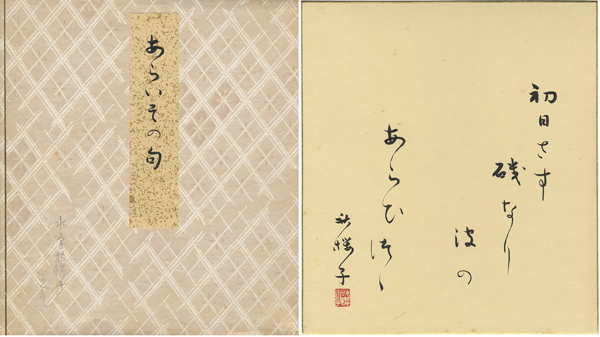 あらいその句
水原秋櫻子
初日さす
磯なり
波の
あらひつゝ
秋櫻子